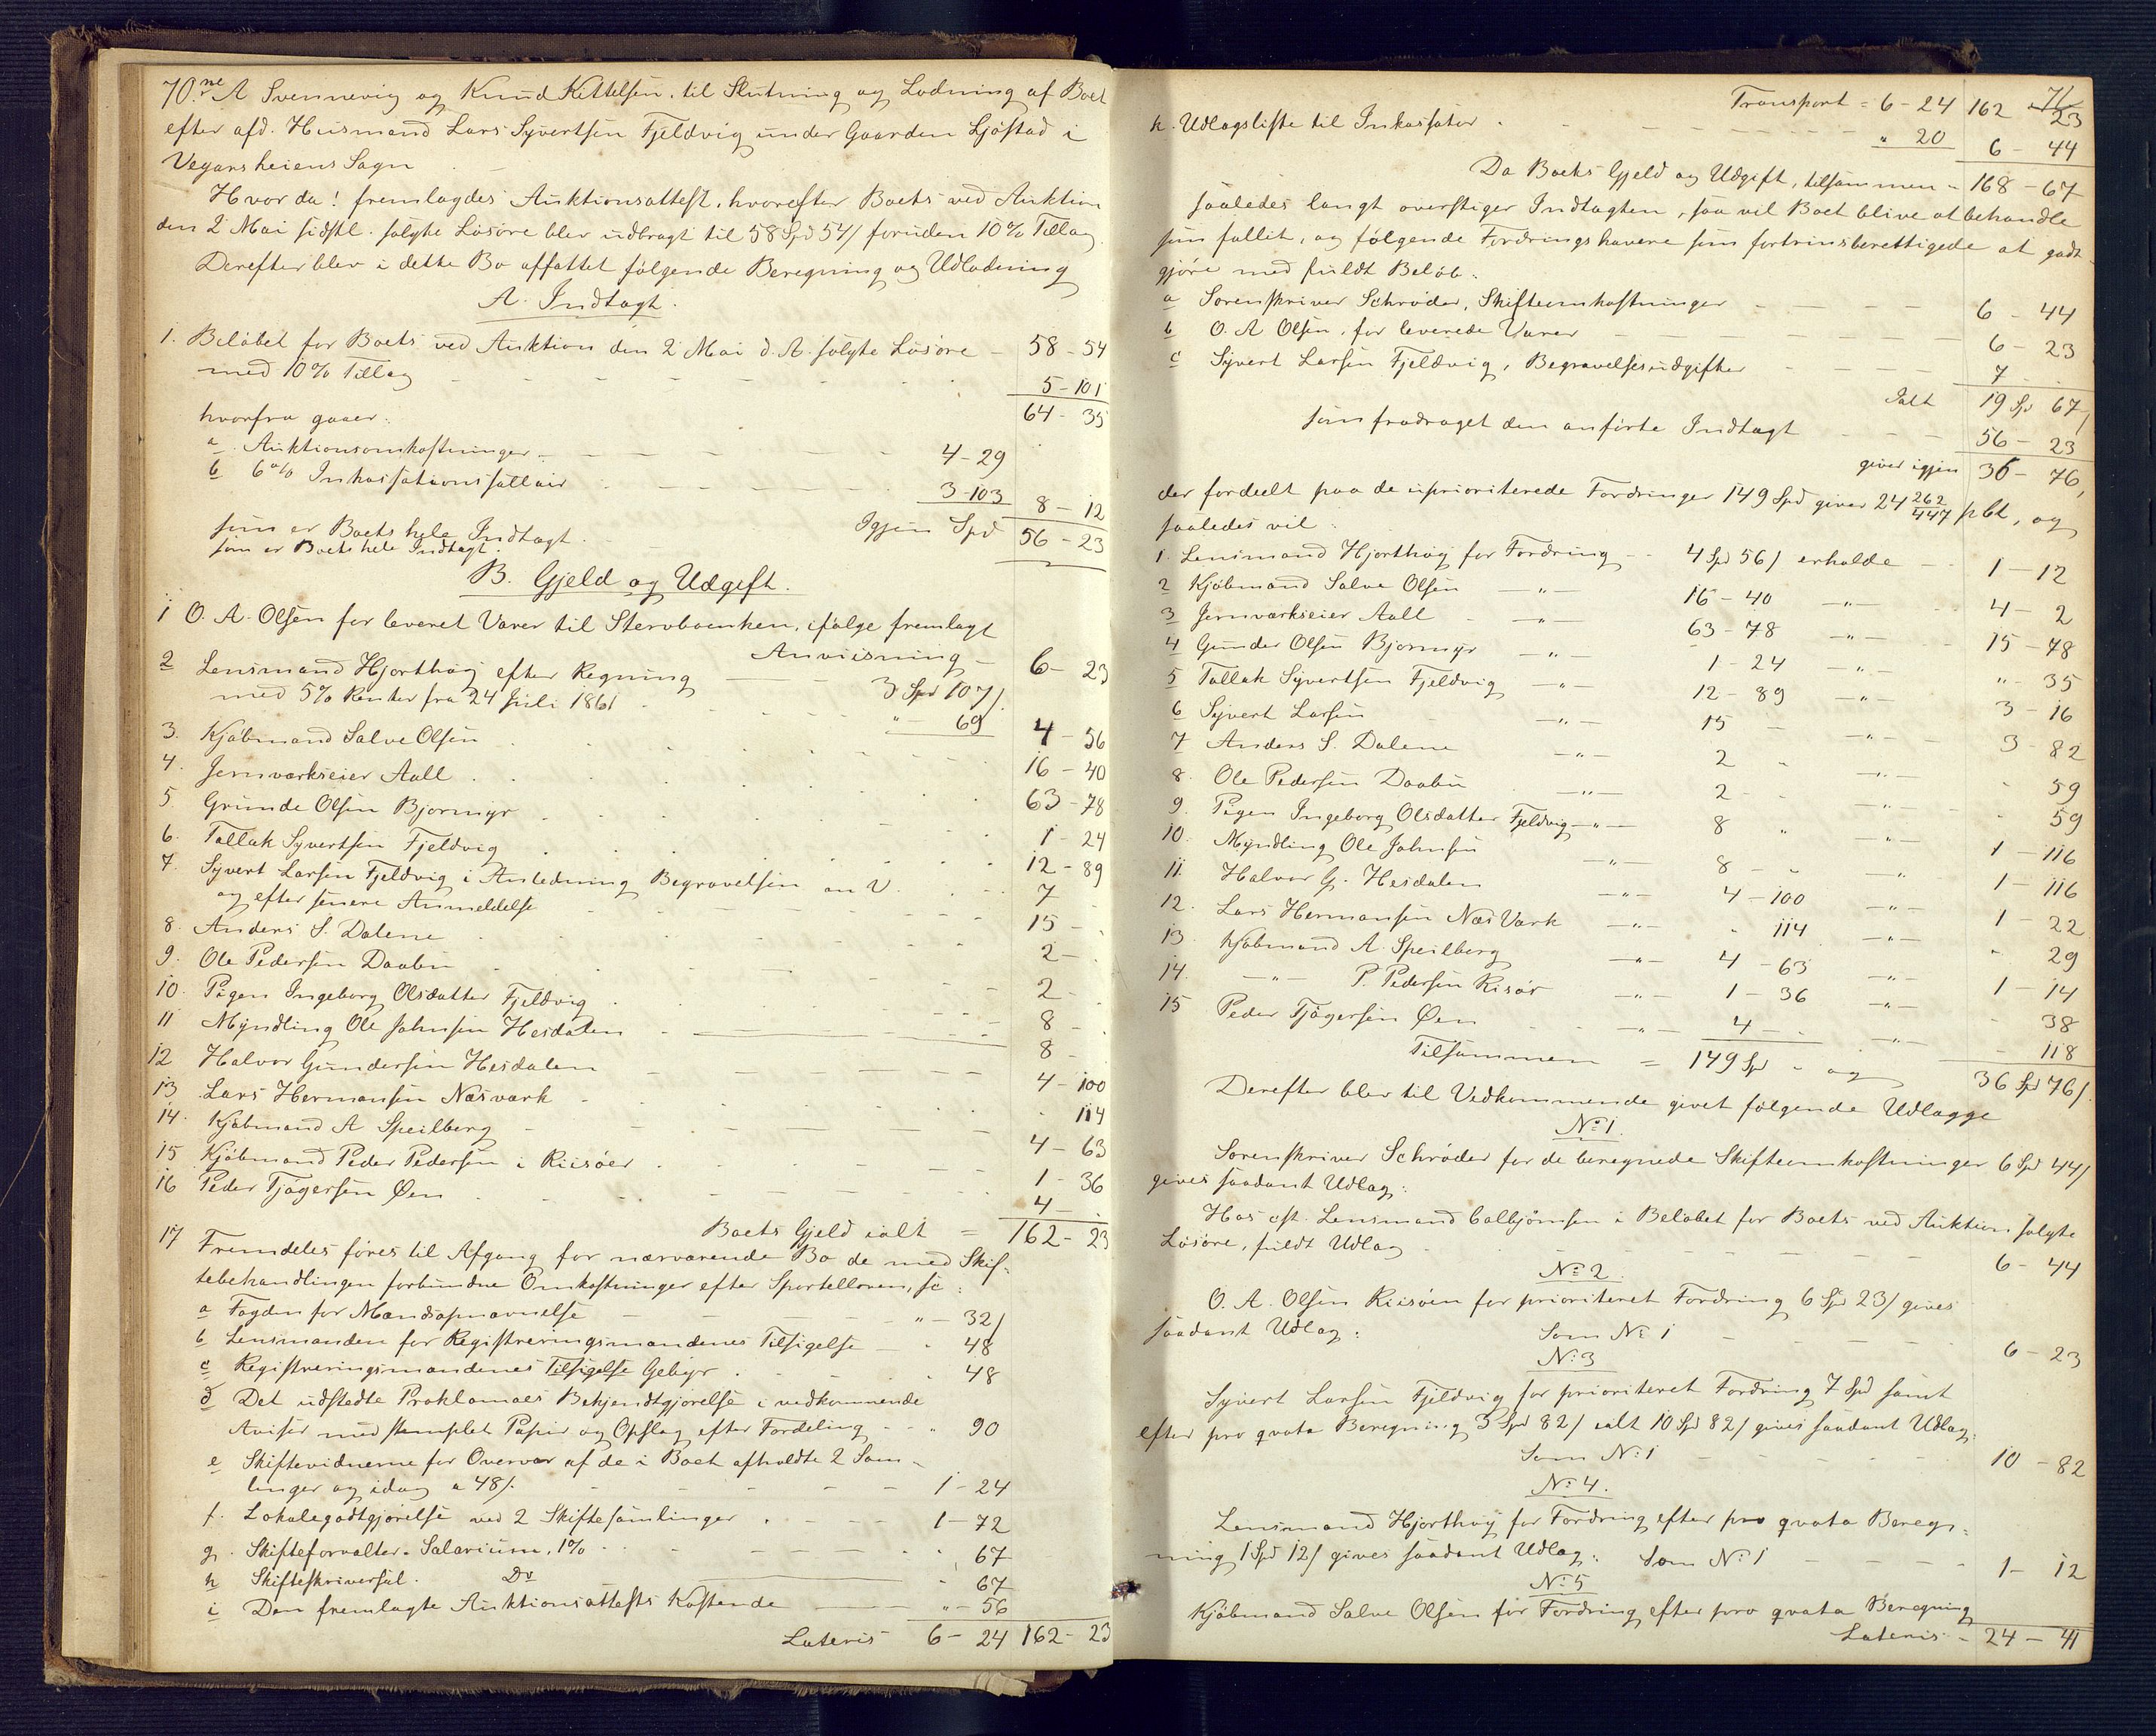 70. A Svennevig og Knud Kittelsen, til Slutning og Lodning af Boet
efter afd. Huusmand Lars Syvertsen Fjeldvig under Gaarden Ljøstad i
Vegarsheiens Sogn
Hvor da! fremlagdes Auktionsattest, hvorefter Boets ved Auktion
den 2 Mai sidstl. solgte Løsøre blev udbragt til 58 Spd 54 / foruden 10% Tillæg
Derefter blev i dette Bo affattet følgende Beregning og Udlodning
A. Indtægt.
1. Beløbet for Boets ved Auktion den 2 Mai d. A. solgte Løsøre - 58 - 54
med 10% Tillæg - 5 - 101
64 - 35
hvorfra gaaer:
a. Auktionsomkostninger - 4 - 29
b 6% Inkassationssallair 3 - 103 8 - 12
Igjen Spd 56 - 23
som er Boets hele Indtægt.
som er Boets hele Indtægt.
B. Gjeld og Udgift.
1 O. A. Olsen for leveret Varer til Stervboenken, ifølge fremlagt
Anviisning - 6 - 23
2 Lensmand Hjorthøy efter Regning - 3 Spd 107 /
med 5% Renter fra 24 Juli 1861 " 69 4 - 56
3. Kjøbmand Salve Olsen 16 - 40
4. Jernværkseier Aall 63 - 78
5 Grunde Olsen Bjormyr 1 - 24
6. Tallak Syvertsen Fjeldvig 12 - 89
7. Syvert Larsen Fjeldvig i Anledning Begravelsen 7
og efter senere Anmeldelse 15 -
8. Anders S. Dalene 2 -
9. Ole Pedersen Daabu 2 -
10. Pigen Ingeborg Olsdatter Fjeldvig 8 -
11 Myndling Ole Johnsen Hesdalen 8 -
12 Halvor Gundersen Hesdalen 4 - 100
13 Lars Hermansen Næsværk - 114
14. Kjøbmand A Speilberg 4 - 63
15 Kjøbmand Peder Pedersen i Riisøer 1 - 36
16 Peder Tjøgersen Øen 4 -
Boets Gjeld ialt = 162 - 23
17 Fremdeles føres til Afgang for nærværende Bo de med Skif-
tebehandlingen forbundne Omkostninger efter Sportelloven, sc:
a Fogden for Mændsopnævnelse " - 32 /
b Lensmanden for Registreringsmændenes Tilsigelse " 48
c Registreringsmændenes Tilsigelse Gebyr 48
d Det udstedte Proklamaes Bekjendtgjørelse i vedkommende
Aviser med stemplet Papir og Opslag efter Fordeling - " 90
e Skiftevidnerne for Overvær af de i Boet afholdte 2 Sam-
linger og idag a 48 /. 1 - 24
f. Lokalegodtgjørelse ved 2 Skiftesamlinger 1 - 72
g. Skifteforvalter-Salarium, 1% 67
h Skifteskriversal. Do 67
i Den fremlagte Auktionsattests Kostende " - 56
Lateris 6 - 24 162 - 23
71
Transport = 6 - 24 162 - 23
k. Udlægsliste til Inkassator " 20 6 - 44
Da Boets Gjeld og Udgift, tilsammen - 168 - 67
saaledes langt overstiger Indtægten, saa vil Boet blive at behandle
som fallit, og følgende Fordringshavere som fortrinsberettigede at godt-
gjøre med fuldt Beløb:
a Sorenskriver Schrøder, Skifteomkostninger 6 - 44
b O. A Olsen, for leverede Varer 6 - 23
c Syvert Larsen Fjeldvig, Begravelsesudgifter 7
Ialt 19 Spd 67 /
som fradraget den anførte Indtægt 56 - 23
giver igjen 36 - 76,
der fordeelt paa de uprioriterede Fordringer 149 Spd giver 24 262/447 pCt, og
saaledes vil:
1. Lensmand Hjorthøy for Fordring - 4 Spd 56 / erholde - 1 - 12
2 Kjøbmand Salve Olsen - " - 16 - 40 - " - 4 - 2
3 Jernværkseier Aall - " - 63 - 78 - " - 15 - 78
4 Gunder Olsen Bjormyr - " - 1 - 24 - " - " - 35
5 Tallak Syvertsen Fjeldvig - " - 12 - 89 - " - 3 - 16
6 Syvert Larsen - " - 15 - - " - 3 - 82
7 Anders S. Dalene - " - 2 - - " - - 59
8. Ole Pedersen Daabu - " - 2 - - " - - 59
9. Pigen Ingeborg Olsdatter Fjeldvig - " - 8 " - " - 1 - 116
10. Myndling Ole Johnsen - " - 8 - - " - 1 - 116
11. Halvor G. Hesdalen - " - 4 - 100 - " - 1 - 22
12. Lars Hermansen Næs Værk - " - " 114 - " - " 29
13 Kjøbmand A. Speilberg - " - 4 - 63 - " - 1 - 14
14. - " - P. Pedersen Risør - " - 1 - 36 - " - - 38
15 Peder Tjøgersen Øen - " - 4 - - " - - 118
Tilsammen = 149 Spd - og 36 Spd 76 /.
Derefter blev til Vedkommende givet følgende Udlægge
No 1.
Sorenskriver Schrøder for de beregnede Skifteomkostninger 6 Spd 44 /
gives saadant Udlæg:
Hos cst. Lensmand Calbjørnsen i Beløbet for Boets ved Auktion solgte
Løsøre, fuldt Udlæg 6 - 44
No 2
O. A. Olsen Riisøen for prioriteret Fordring 6 Spd 23 / gives
saadant Udlæg: Som No 1 6 - 23
No 3
Syvert Larsen Fjeldvig for prioriteret Fordring 7 Spd samt
efter pro qvota Beregning 3 Spd 82 / ialt 10 Spd 82 / gives saadant Udlæg:
Som No 1 10 - 82
No 4.
Lensmand Hjorthøy for Fordring efter pro qvota Bereg-
ning 1 Spd 12 / gives saadant Udlæg: Som No 1 1 - 12
No 5
Kjøbmand Salve Olsen for Fordring efter pro qvota Beregning
Lateris - 24 - 41